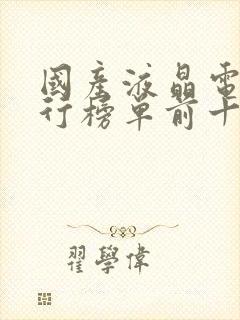 國產液晶電
行榜單前十
翟學偉